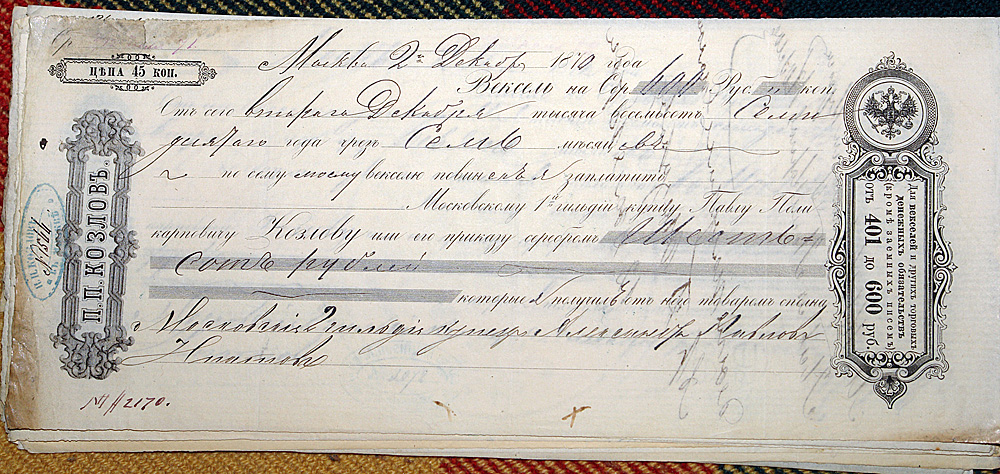 ЦѢНА 45 КОП.
Москва 2го Декабр 1870 года
Вексель на Сер. 600 Руб. коп.
Отъ сего втораго Декабря тысяча восемьсотъ Семи
десятаго года чрезъ Семь мѣсяцевъ
по сему моему векселю повиненъ я заплатить
Московскому 1й гильдіи купцу Павлу Поли
карповичу Козлову или его приказу серебромъ Шесть
сотъ рублей
которые я получилъ отъ него товаромъ сполна
Московскій 2 гильдіи купецъ Александръ Павловъ
П. П. КОЗЛОВЪ.
№ 2170.
Для векселей и другихъ торговыхъ
денежныхъ обязательствъ
(кромѣ заемныхъ писемъ)
отъ 401 до 600 руб.